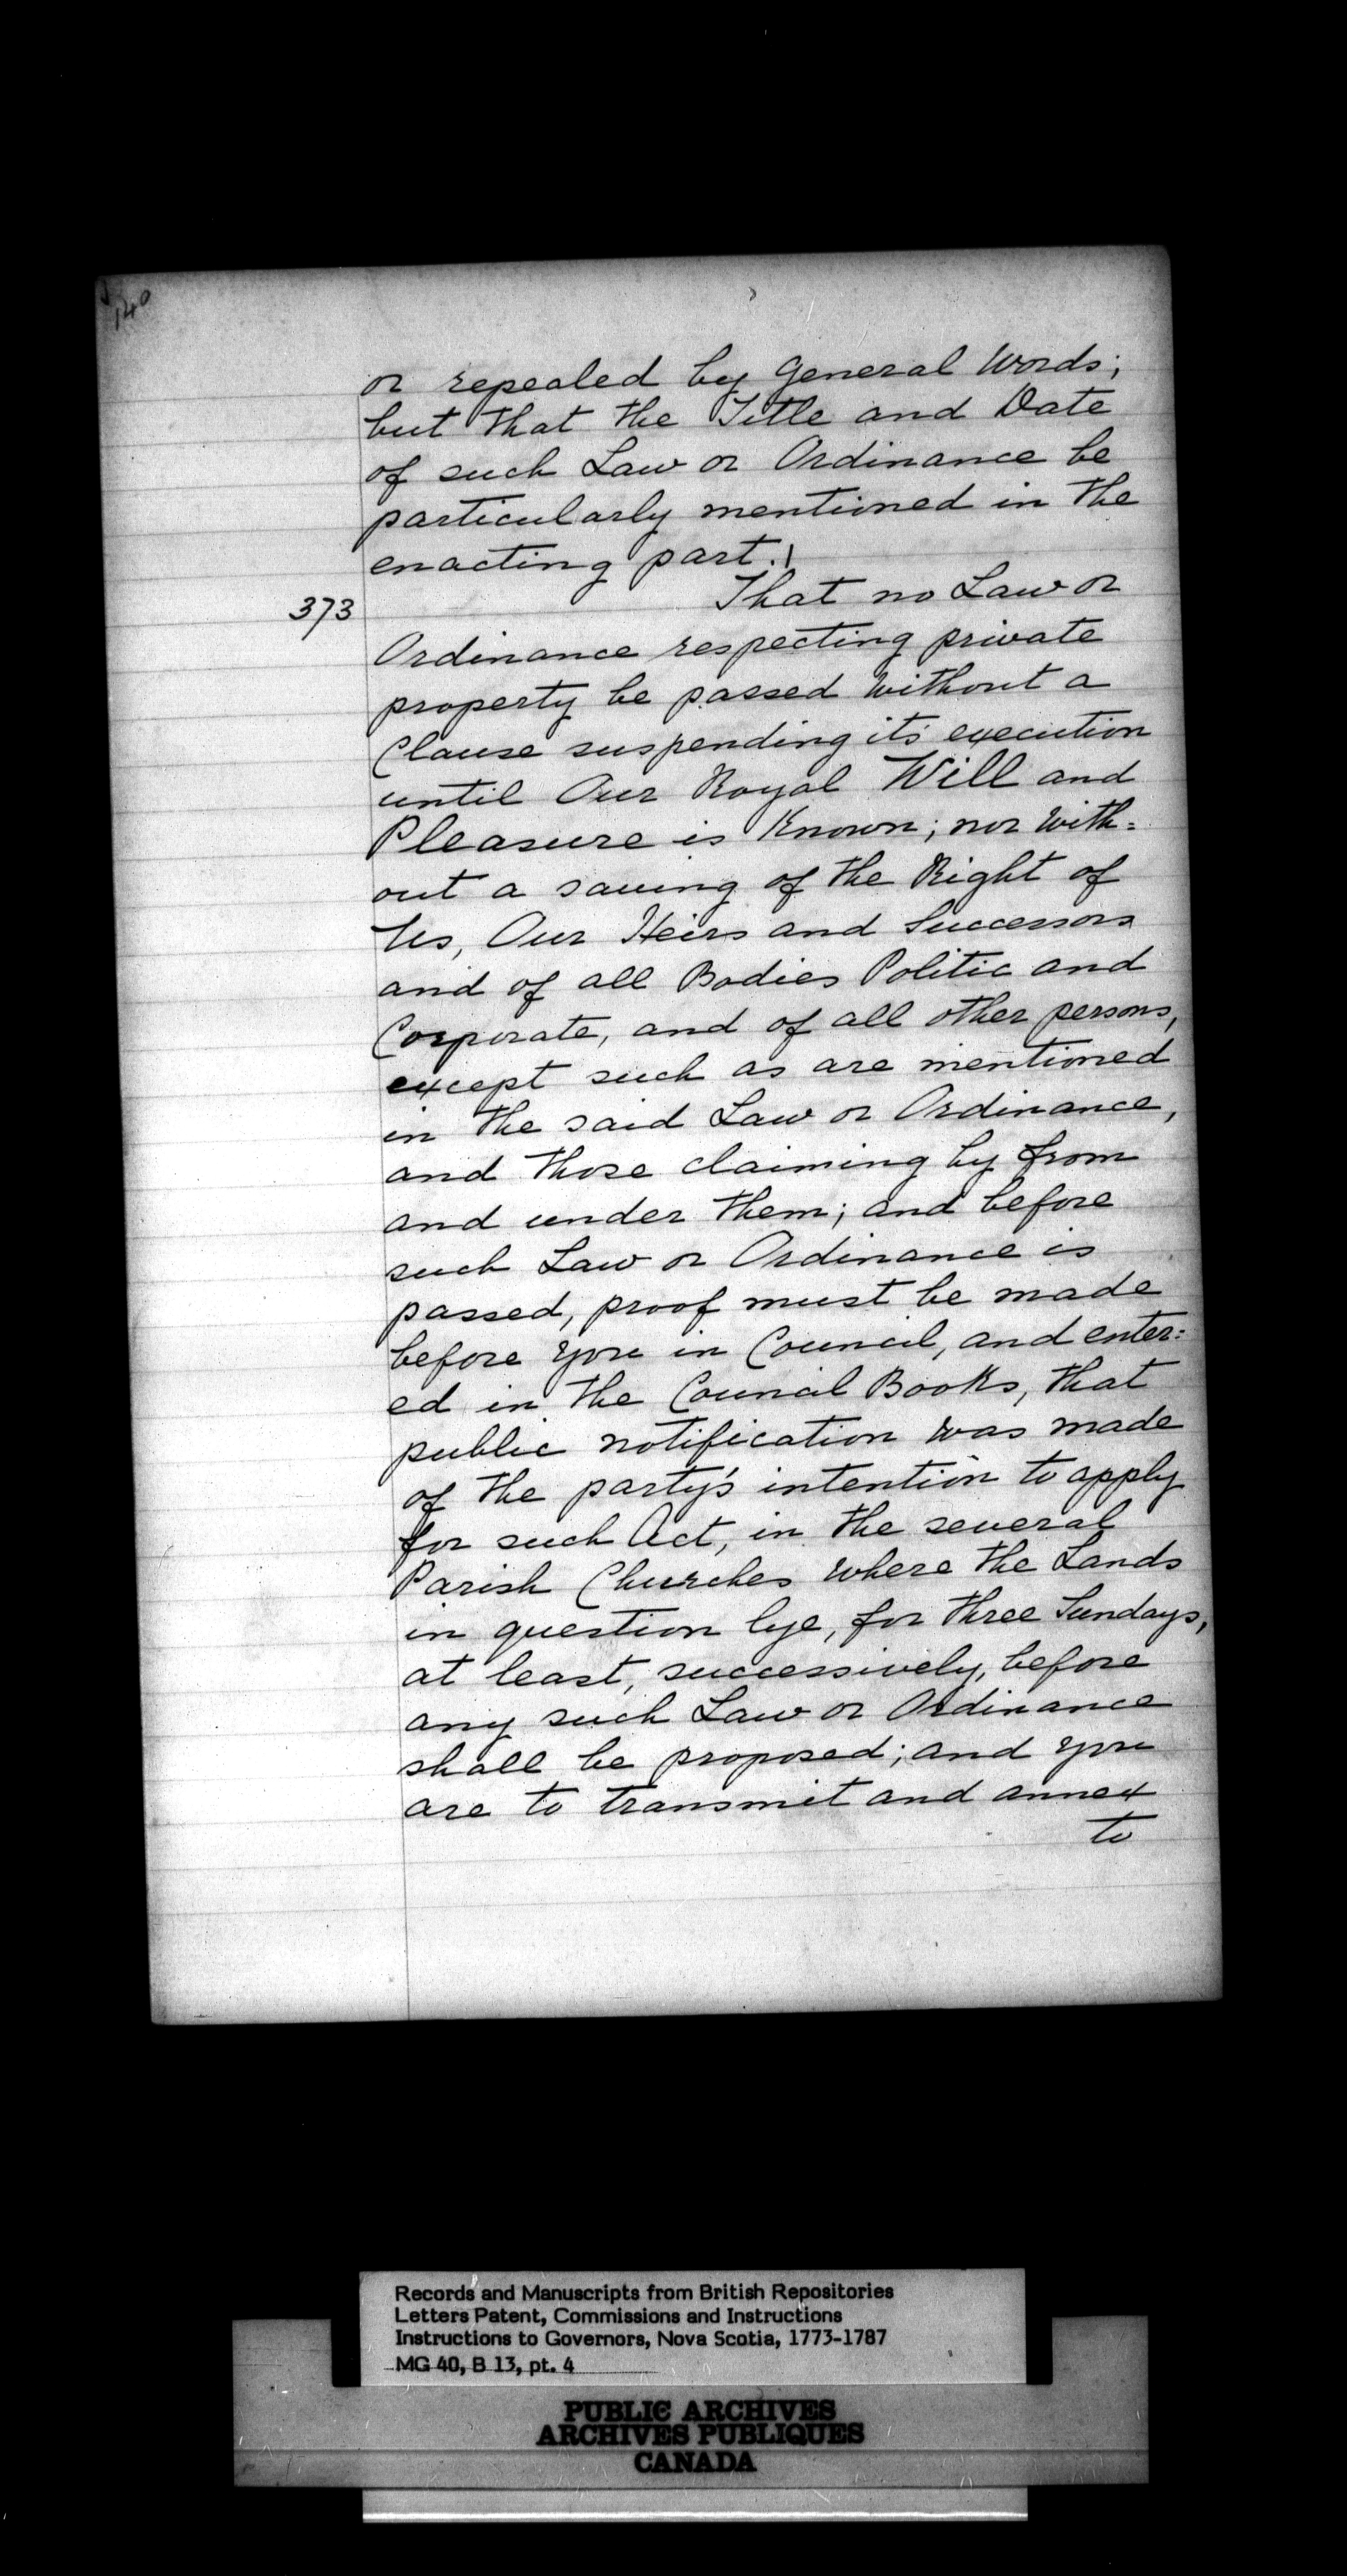 140
or repealed by General Words;
but that the Title and Date
of such Law or Ordinance be
particularly mentioned in the
enacting part.
373
That no Law or
Ordinance respecting private
property be passed without a
Clause suspending its execution
until Our Royal Will and
Pleasure is Known; nor with=
out a saving of the Right of
Us, Our Heirs and Successors
and of all Bodies Politic and
Corporate, and of all other persons,
except such as are mentioned
in the said Law or Ordinance,
and those claiming by from
and under them; and before
such Law or Ordinance is
passed, proof must be made
before you in Council, and enter=
ed in the Council Books, that
public notification was made
of the party's intention to apply
for such Act, in the several
Parish Churches where the Lands
in question lye, for three Sundays,
at least, successively, before
any such Law or Ordinance
shall be proposed; and you
are to transmit and annex
to
Records and Manuscripts from British Repositories
Letters Patent, Commissions and Instructions
Instructions to Governors, Nova Scotia, 1773-1787
MG 40, B 13, pt. 4
PUBLIC ARCHIVES
ARCHIVES PUBLIQUES
CANADA